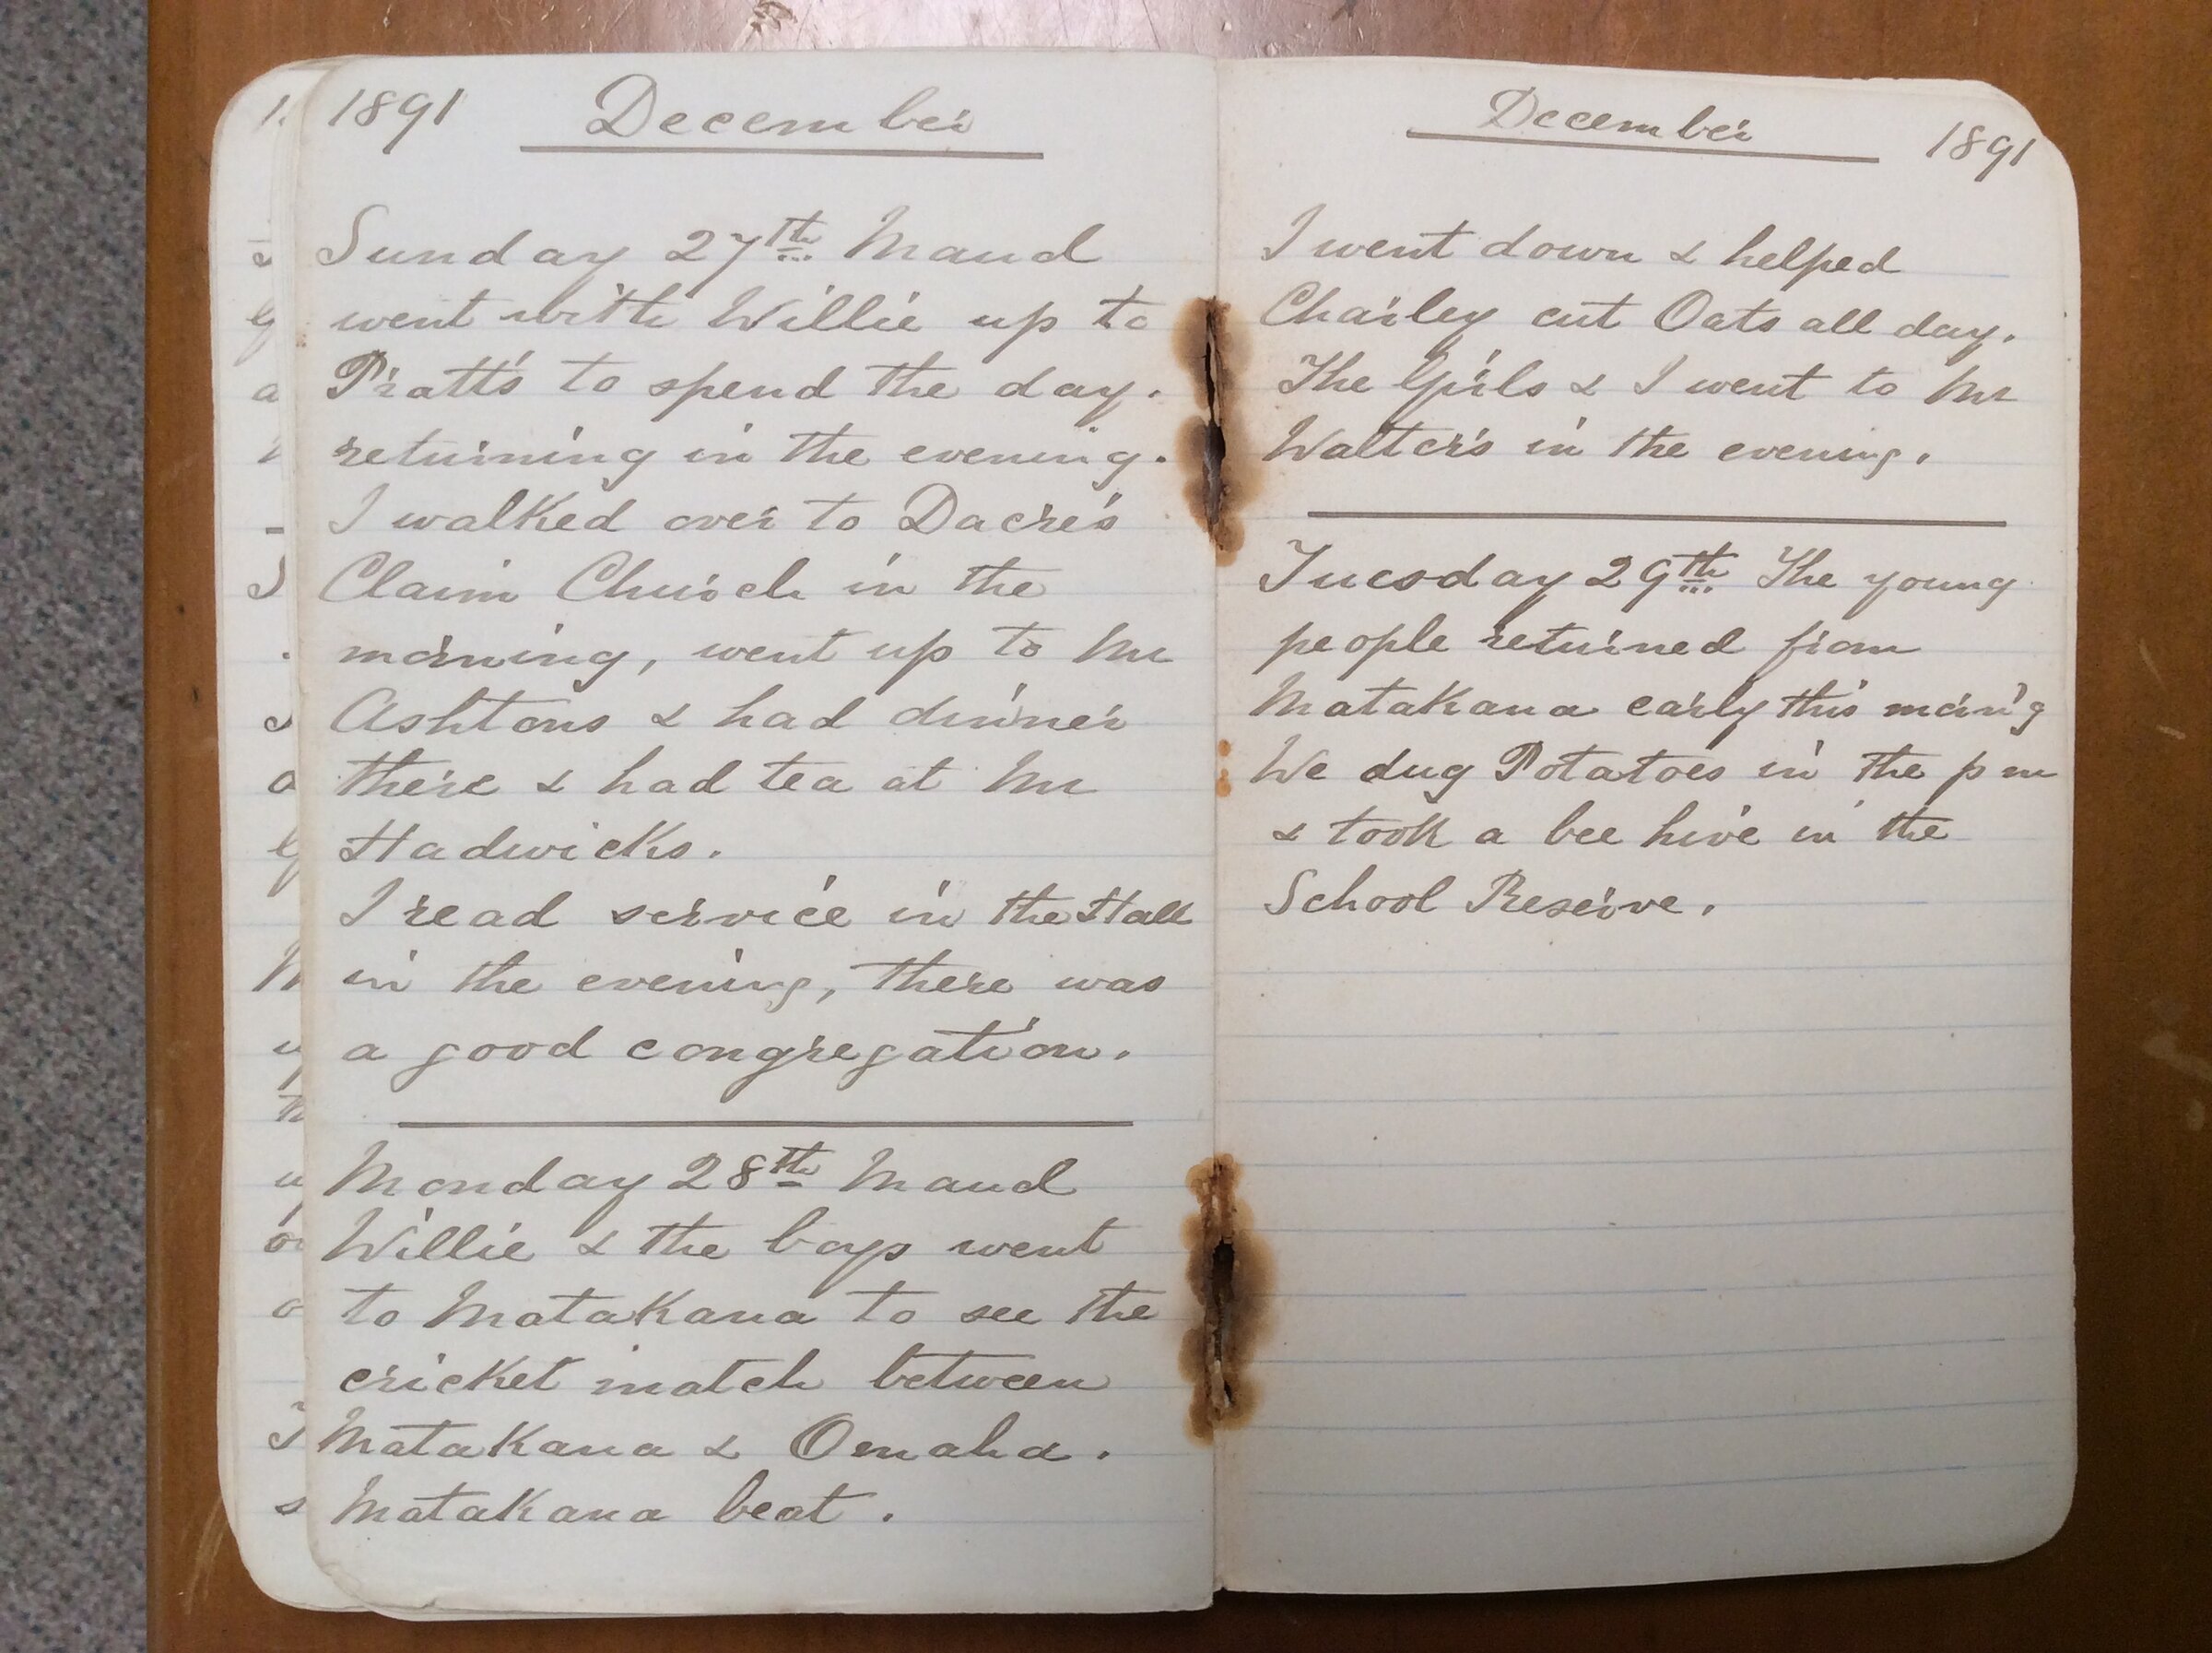 1891 December
Sunday 27th Maud
went with Willie up to
Pratt's to spend the day.
returning in the evening.
I walked over to Dacre's
Claim Church in the
morning, went up to Mr
Ashtons & had dinner
there & had tea at Mr
Hadwicks.
I read service in the Hall
in the evening, there was
a good congregation.
Monday 28th Maud
Willie & the boys went
to Matakana to see the
cricket match between
Matakana & Omaha.
Matakana beat.
December 1891
I went down & helped
Charley cut Oats all day.
The Girls & I went to Mr
Walter's in the evening.
Tuesday 29th The young
people returned from
Matakana early this morn'g
We dug Potatoes in the p m
& took a bee hive in the
School Reserve.